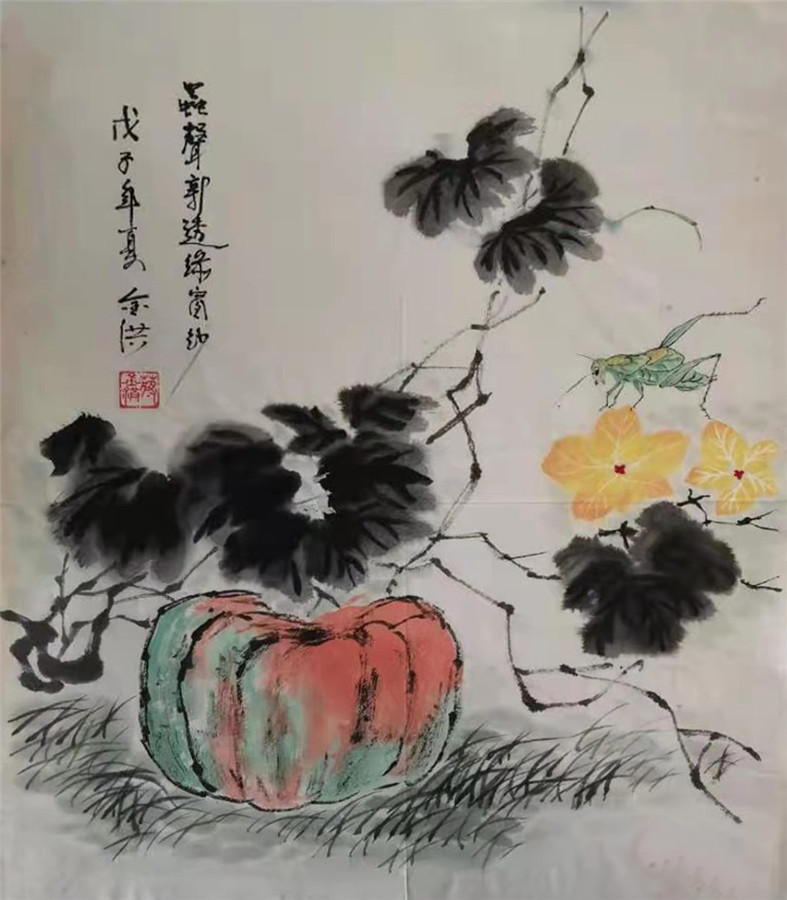 蟲聲新透綠窗紗
戊子年夏 金洪